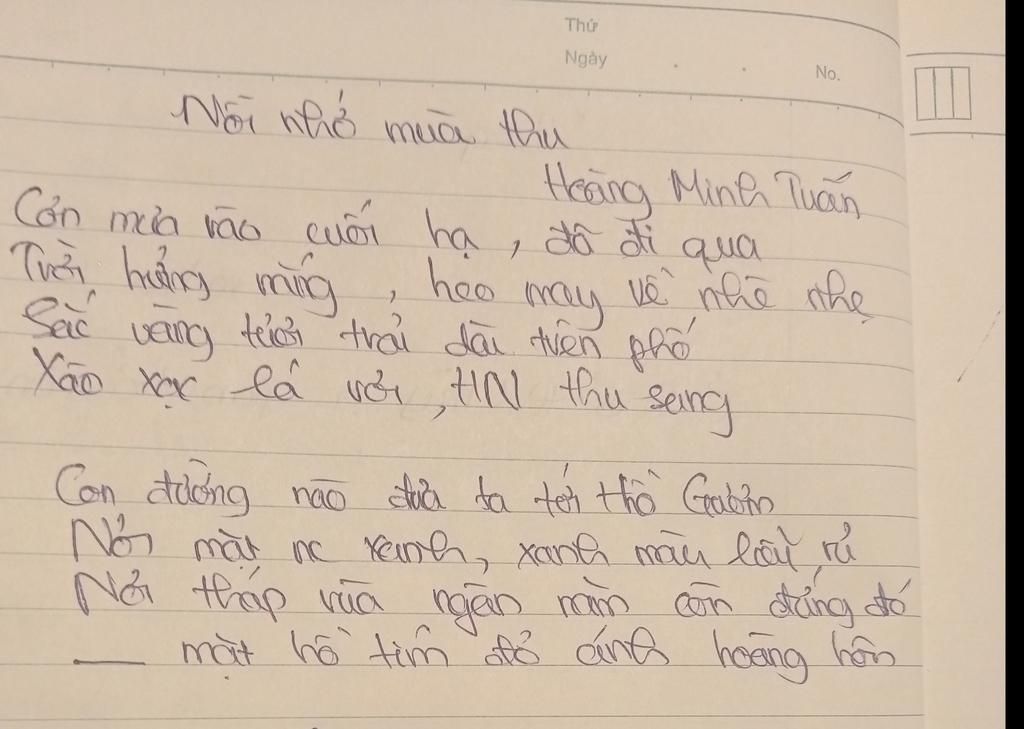 Thứ
Ngày
No.
Nỗi nhớ mùa thu
Hoàng Minh Tuấn
Cơn mưa rào cuối hạ, đã đi qua
Trời hửng nắng, heo may về nhè nhẹ
Sắc vàng tươi trải dài trên phố
Xào xạc lá rơi, HN thu sang
Con đường nào đưa ta tới hồ Gươm
Nơi mặt nc xanh, xanh màu liễu rủ
Nơi tháp rùa ngàn năm còn đứng đó
— mặt hồ tím đỏ ánh hoàng hôn